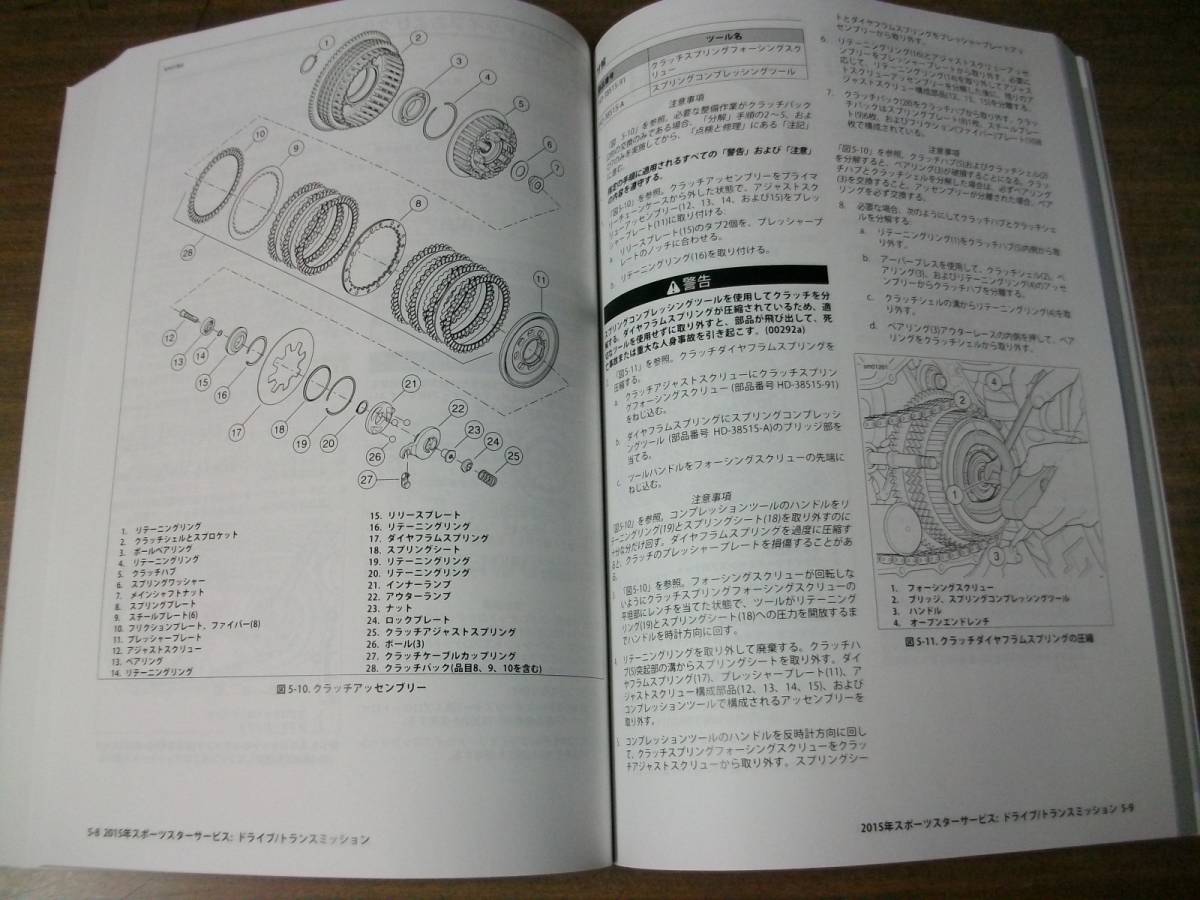 1. リテーニングリング
2. クラッチシェルとスプロケット
3. ボールベアリング
4. リテーニングリング
5. クラッチハブ
6. スプリングワッシャー
7. メインシャフトナット
8. スプリングプレート
9. スチールプレート(6)
10. フリクションプレート、ファイバー(8)
11. プレッシャープレート
12. アジャストスクリュー
13. ベアリング
14. リテーニングリング
15. リリースプレート
16. リテーニングリング
17. ダイヤフラムスプリング
18. スプリングシート
19. リテーニングリング
20. リテーニングリング
21. インナーランプ
22. アウターランプ
23. ナット
24. ロックプレート
25. クラッチアジャストスプリング
26. ボール(3)
27. クラッチケーブルカップリング
28. クラッチパック(品目8、9、10を含む)
図 5-10. クラッチアッセンブリー
5-8 2015年スポーツスターサービス: ドライブ/トランスミッション
ツール名
クラッチスプリングフォーシングスク
リュー
スプリングコンプレッシングツール
注意事項
図 5-10」を参照。必要な整備作業がクラッチパック
の交換のみである場合、「分解」手順の2~5、およ
のみを実施してから、「点検と修理」にある「注記」
の手順に適用されるすべての「警告」および「注意」
の内容を遵守する。
「図5-10」を参照。クラッチアッセンブリーをプライマ
リーチェーンケースから外した状態で、アジャストスク
リューアッセンブリー(12、13、14、および15)をプレッ
シャープレート(11)に取り付ける。
a. リリースプレート(15)のタブ2個を、プレッシャープ
レートのノッチに合わせる。
b. リテーニングリング(16)を取り付ける。
警告
スプリングコンプレッシングツールを使用してクラッチを分
解する。ダイヤフラムスプリングが圧縮されているため、適
切なツールを使用せずに取り外すと、部品が飛び出して、死
亡事故または重大な人身事故を引き起こす。(00292a)
「図5-11」を参照。クラッチダイヤフラムスプリングを
圧縮する。
a. クラッチアジャストスクリューにクラッチスプリン
グフォーシングスクリュー (部品番号 HD-38515-91)
をねじ込む。
b. ダイヤフラムスプリングにスプリングコンプレッシ
ングツール (部品番号 HD-38515-A)のブリッジ部を
当てる。
c. ツールハンドルをフォーシングスクリューの先端に
ねじ込む。
注意事項
「図5-10」を参照。コンプレッションツールのハンドルをリ
テーニングリング(19)とスプリングシート(18)を取り外すのに
十分な分だけ回す。ダイヤフラムスプリングを過度に圧縮す
ると、クラッチのプレッシャープレートを損傷することがあ
る。
「図5-10」を参照。フォーシングスクリューが回転しな
いようにクラッチスプリングフォーシングスクリューの
平坦部にレンチを当てた状態で、ツールがリテーニング
リング(19)とスプリングシート(18)への圧力を開放するま
でハンドルを時計方向に回す。
リテーニングリングを取り外して廃棄する。クラッチハ
ブ(5)突起部の溝からスプリングシートを取り外す。ダイ
ヤフラムスプリング(17)、プレッシャープレート(11)、ア
ジャストスクリュー構成部品(12、13、14、15)、および
コンプレッションツールで構成されるアッセンブリーを
取り外す。
コンプレッションツールのハンドルを反時計方向に回し
て、クラッチスプリングフォーシングスクリューをクラッ
チアジャストスクリューから取り外す。スプリングシー
トとダイヤフラムスプリングをプレッシャープレートアッ
センブリーから取り外す。
6. リテーニングリング(16)とアジャストスクリューアッセ
ンブリーをプレッシャープレートから取り外す。必要に
応じて、リテーニングリング(14)を取り外してアジャス
トスクリューアッセンブリーを分解した後に、残りのア
ジャストスクリュー構成部品(12、13、15)を分解する。
7. クラッチパック(28)をクラッチハブから取り外す。クラッ
チパックはスプリングプレート(8)1枚、スチールプレー
ト(9)6枚、およびフリクション(ファイバー)プレート(10)8
枚で構成されている。
注意事項
「図5-10」を参照。クラッチハブ(5)およびクラッチシェル(2)
を分解すると、ベアリング(3)が破損することになる。クラッ
チハブとクラッチシェルを分解した場合は、必ずベアリング
(3)を交換すること。アッセンブリーが分離された場合、ベア
リングを必ず交換する。
8. 必要な場合、次のようにしてクラッチハブとクラッチシェ
ルを分解する:
a. リテーニングリング(1)をクラッチハブ(5)内側から取
り外す。
b. アーバープレスを使用して、クラッチシェル(2)、ベ
アリング(3)、およびリテーニングリング(4)のアッセ
ンブリーからクラッチハブを分離する。
c. クラッチシェルの溝からリテーニングリング(4)を取
り外す。
d. ベアリング(3)アウターレースの内側を押して、ベア
リングをクラッチシェルから取り外す。
1. フォーシングスクリュー
2. ブリッジ、スプリングコンプレッシングツール
3. ハンドル
4. オープンエンドレンチ
図 5-11. クラッチダイヤフラムスプリングの圧縮
2015年スポーツスターサービス: ドライブ/トランスミッション 5-9